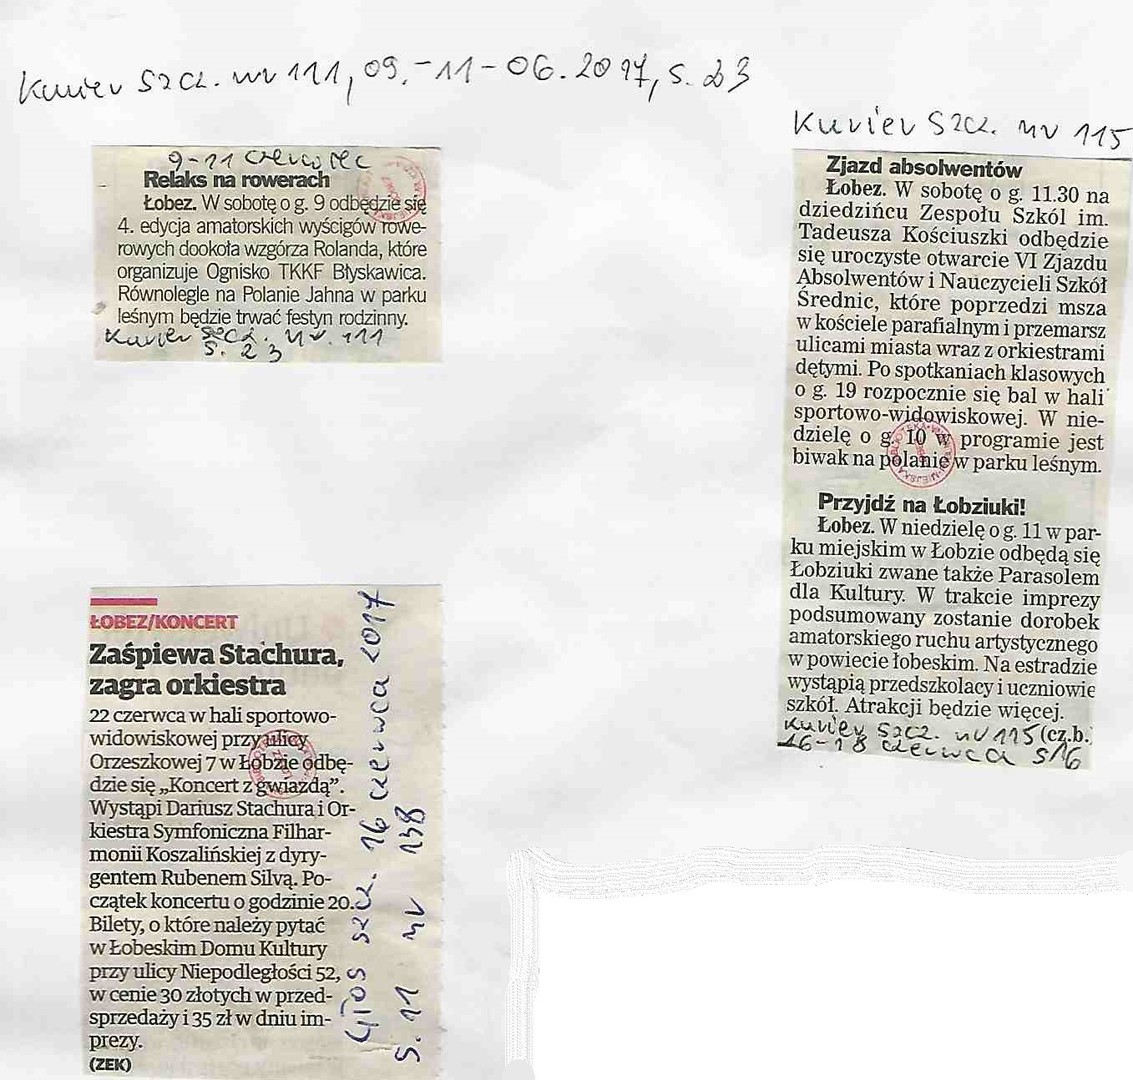 Kurier Szcz. nr 111, 09.-11-06.2017, s. 23
9-11 czerwiec
Relaks na rowerach
Łobez. W sobotę o g. 9 odbędzie się
4. edycja amatorskich wyścigów rowe-
rowych dookoła wzgórza Rolanda, które
organizuje Ognisko TKKF Błyskawica.
Równolegle na Polanie Jahna w parku
leśnym będzie trwać festyn rodzinny.
Kurier szcz. nr. 111
s. 23
ŁOBEZ/KONCERT
Zaśpiewa Stachura,
zagra orkiestra
22 czerwca w hali sportowo-
widowiskowej przy ulicy
Orzeszkowej 7 w Łobzie odbę-
dzie się „Koncert z gwiazdą”.
Wystąpi Dariusz Stachura i Or-
kiestra Symfoniczna Filhar-
monii Koszalińskiej z dyry-
gentem Rubenem Silvą. Po-
czątek koncertu o godzinie 20.
Bilety, o które należy pytać
w Łobeskim Domu Kultury
przy ulicy Niepodległości 52,
w cenie 30 złotych w przed-
sprzedaży i 35 zł w dniu im-
prezy.
(ZEK)
Głos szcz. 16 czerwca 2017
s. 11 nr 138
Kurier Szcz. nr 115
Zjazd absolwentów
Łobez. W sobotę o g. 11.30 na
dziedzińcu Zespołu Szkól im.
Tadeusza Kościuszki odbędzie
się uroczyste otwarcie VI Zjazdu
Absolwentów i Nauczycieli Szkół
Średnic, które poprzedzi msza
w kościele parafialnym i przemarsz
ulicami miasta wraz z orkiestrami
dętymi. Po spotkaniach klasowych
o g. 19 rozpocznie się bal w hali
sportowo-widowiskowej. W nie-
dzielę o g. 10 w programie jest
biwak na polanie w parku leśnym.
Przyjdź na Łobziuki!
Łobez. W niedzielę o g. 11 w par-
ku miejskim w Łobzie odbędą się
Łobziuki zwane także Parasolem
dla Kultury. W trakcie imprezy
podsumowany zostanie dorobek
amatorskiego ruchu artystycznego
w powiecie łobeskim. Na estradzie
wystąpią przedszkolacy i uczniowie
szkół. Atrakcji będzie więcej.
(cz.b.
Kurier szcz. nr 115
16-18 czerwca s16